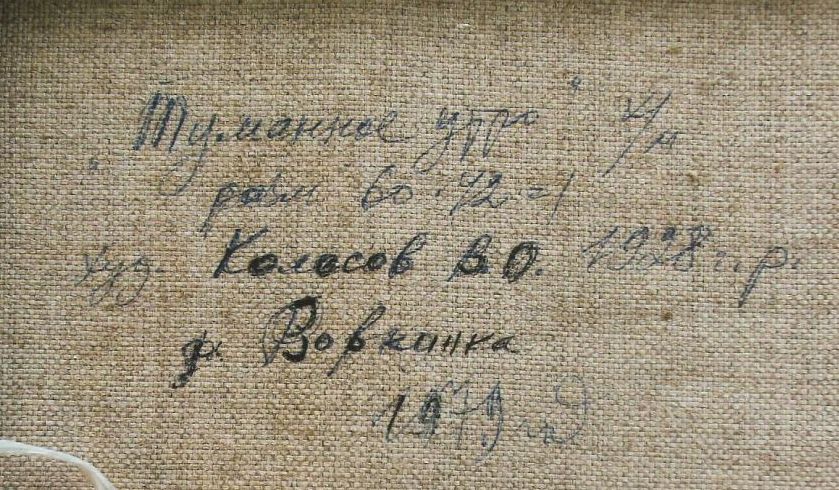 "Туманное утро" х/м
разм 60·72 =
худ. Колосов В.О. 1928 г.р.
д. Вовкинка
1979 г.